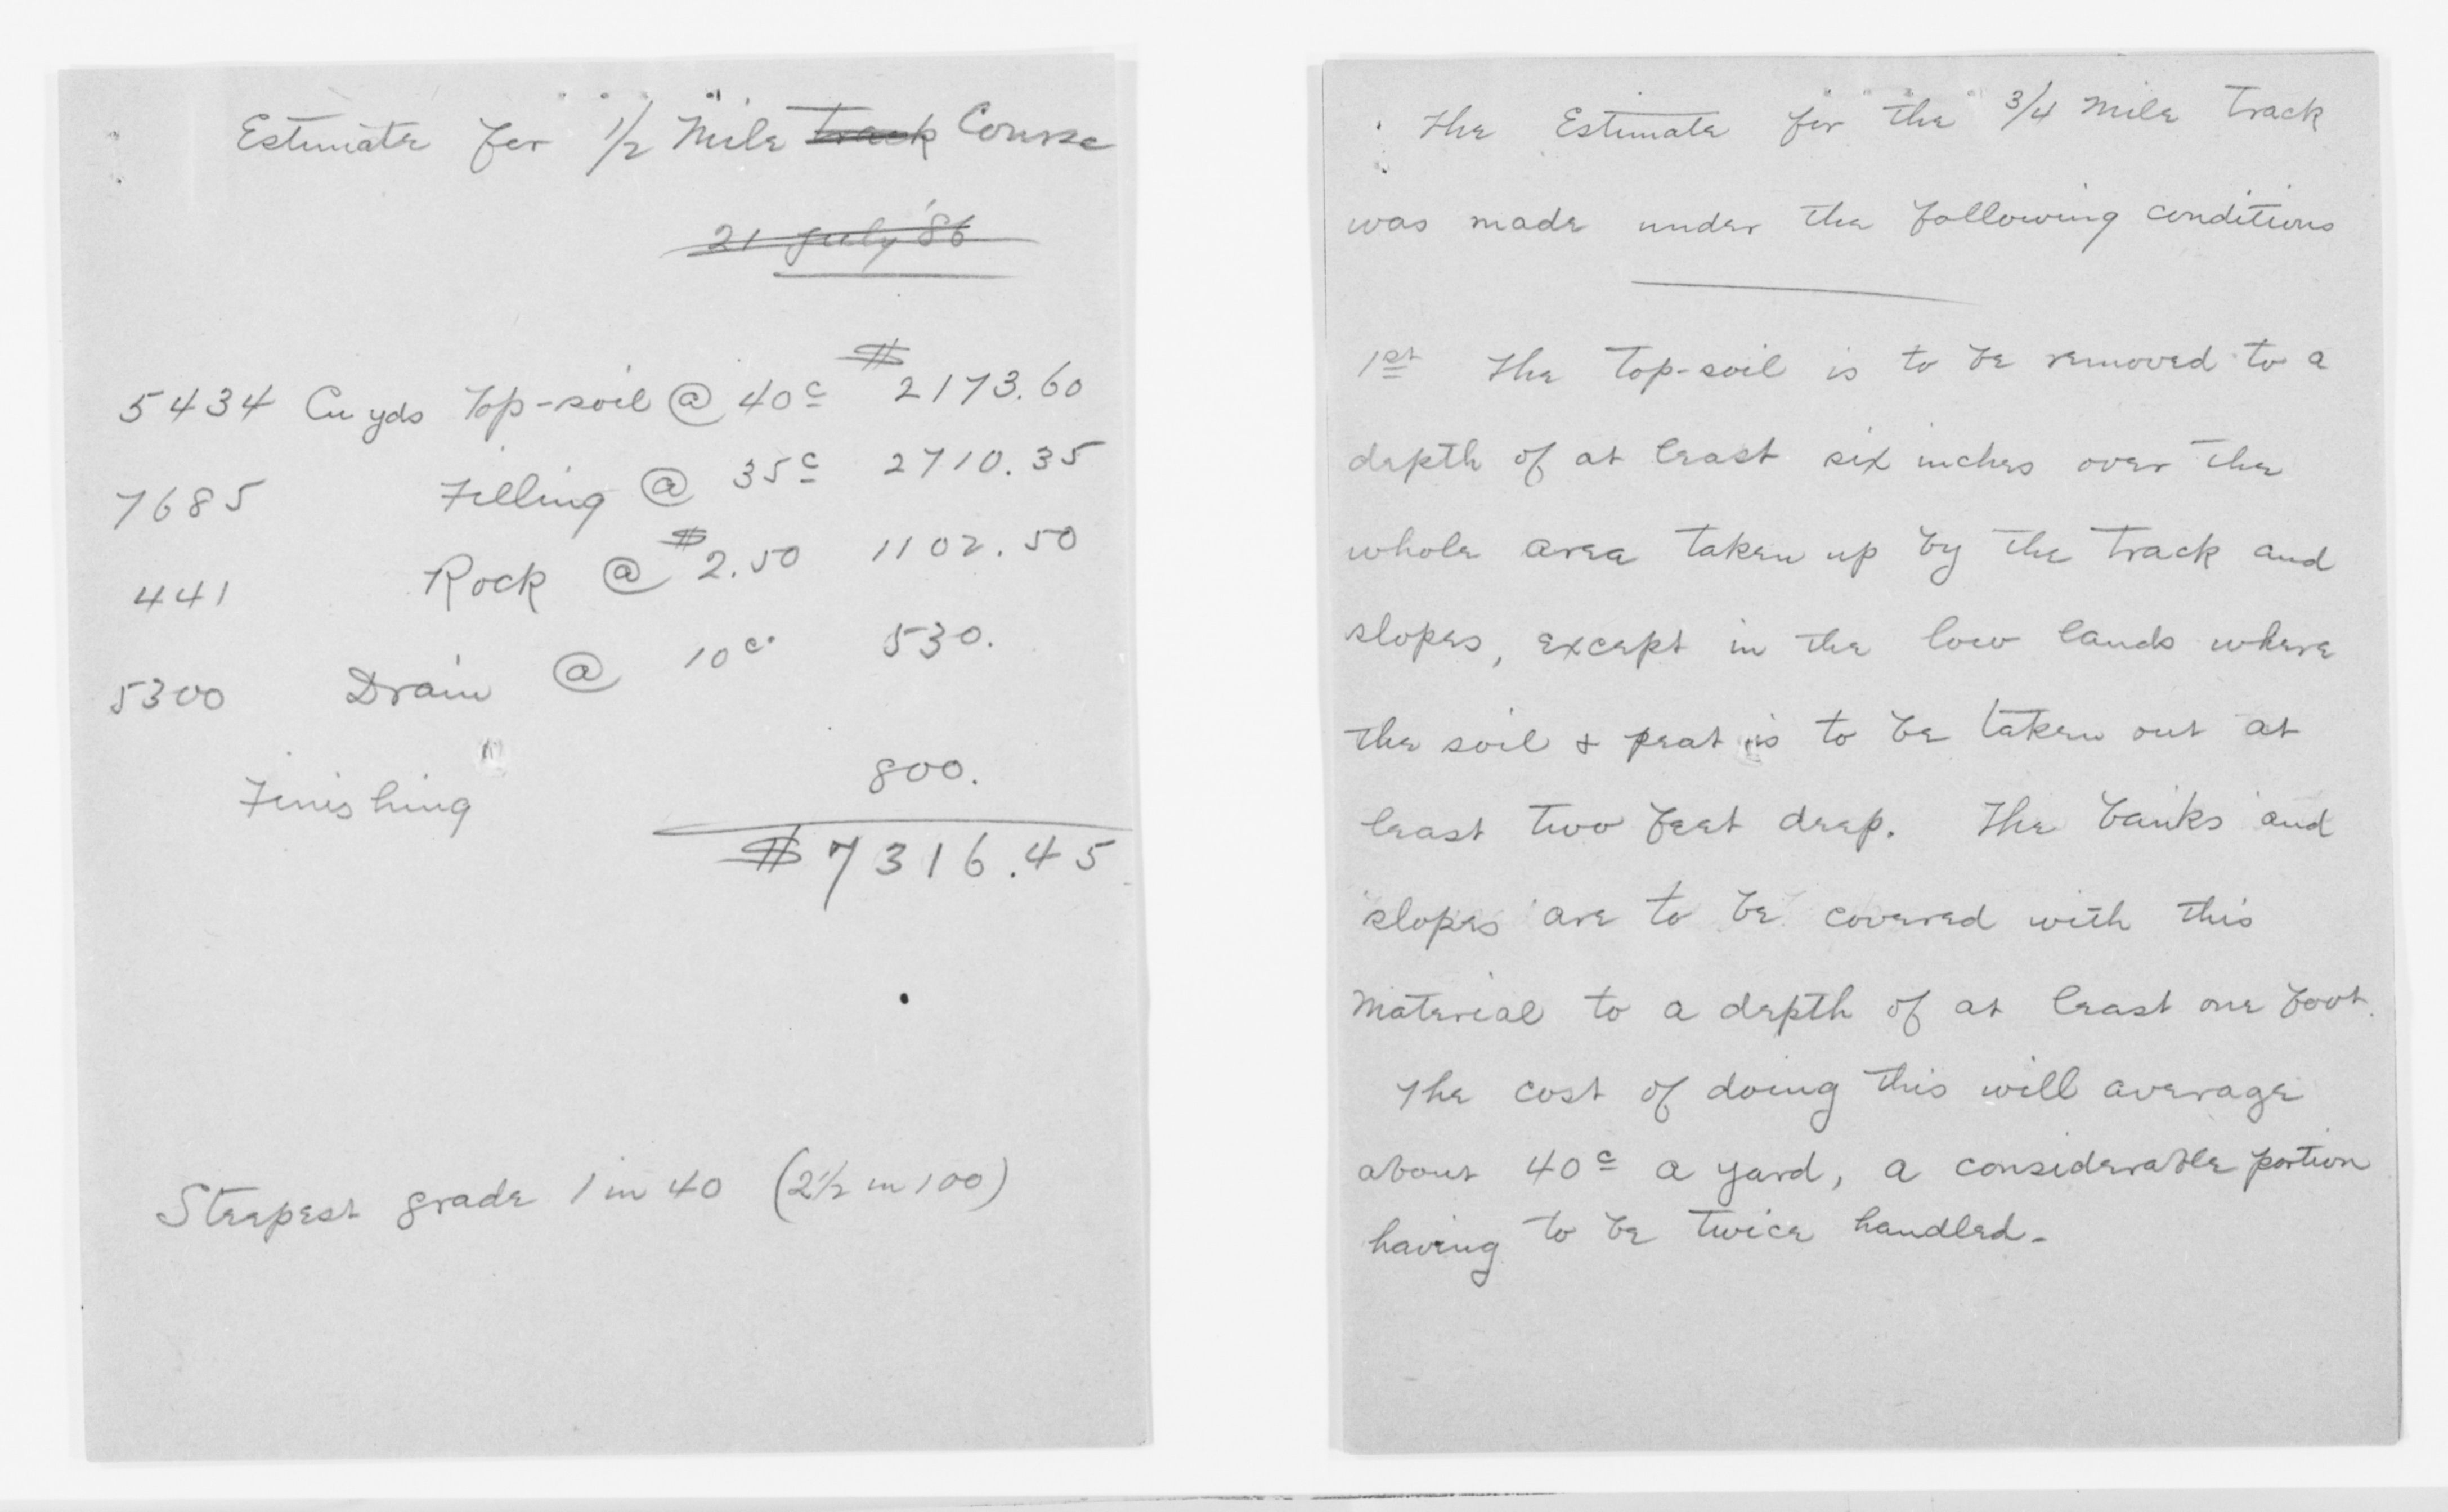 Estimate for 1/2 Mile track Course
21 July '86
5434 Cu yds Top-soil @ 40c $2173.60
7685 Filling @ 35c 2710.35
441 Rock @ $2.50 1102.50
5300 Drain @ 10c. 530.
Finishing 800.
$7316.45
Steepest grade 1 in 40 (2 1/2 in 100)
The Estimate for the 3/4 Mile Track
was made under the following conditions
1st The Top-soil is to be removed to a
depth of at least six inches over the
whole area taken up by the Track and
slopes, except in the low lands where
the soil & peat is to be taken out at
least two feet deep. The banks and
slopes are to be covered with this
Material to a depth of at least one foot.
The cost of doing this will average
about 40c a yard, a considerable portion
having to be twice handled-